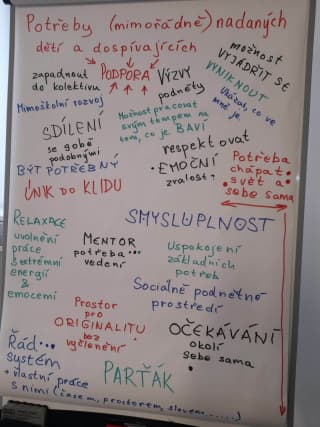 Potřeby (mimořádně) nadaných
dětí a dospívajících
zapadnout
do kolektivu
PODPORA
VÝZVY
podněty
možnost
VYJÁDŘIT SE
VYNIKNOUT
Ukázat, co ve
mně je
Mimoškolní rozvoj
Možnost pracovat
svým tempem na
tom, co je BAVÍ
SDÍLENÍ
se sobě
podobnými
respektovat
EMOČNÍ
zralost?
BÝT POTŘEBNÝ
ÚNIK DO KLIDU
Potřeba
chápat
svět a
sebe sama
RELAXACE
uvolnění
práce
s extrémní
energií
&
emocemi
SMYSLUPLNOST
MENTOR
potřeba...
vedení
Uspokojení
základních
potřeb
Sociálně podnětné
prostředí
Prostor
pro
ORIGINALITU
bez
vyčlenění
OČEKÁVÁNÍ
okolí
sebe sama
Řád...
systém
+ vlastní práce
s nimi (časem, prostorem, slovem......)
PARŤÁK